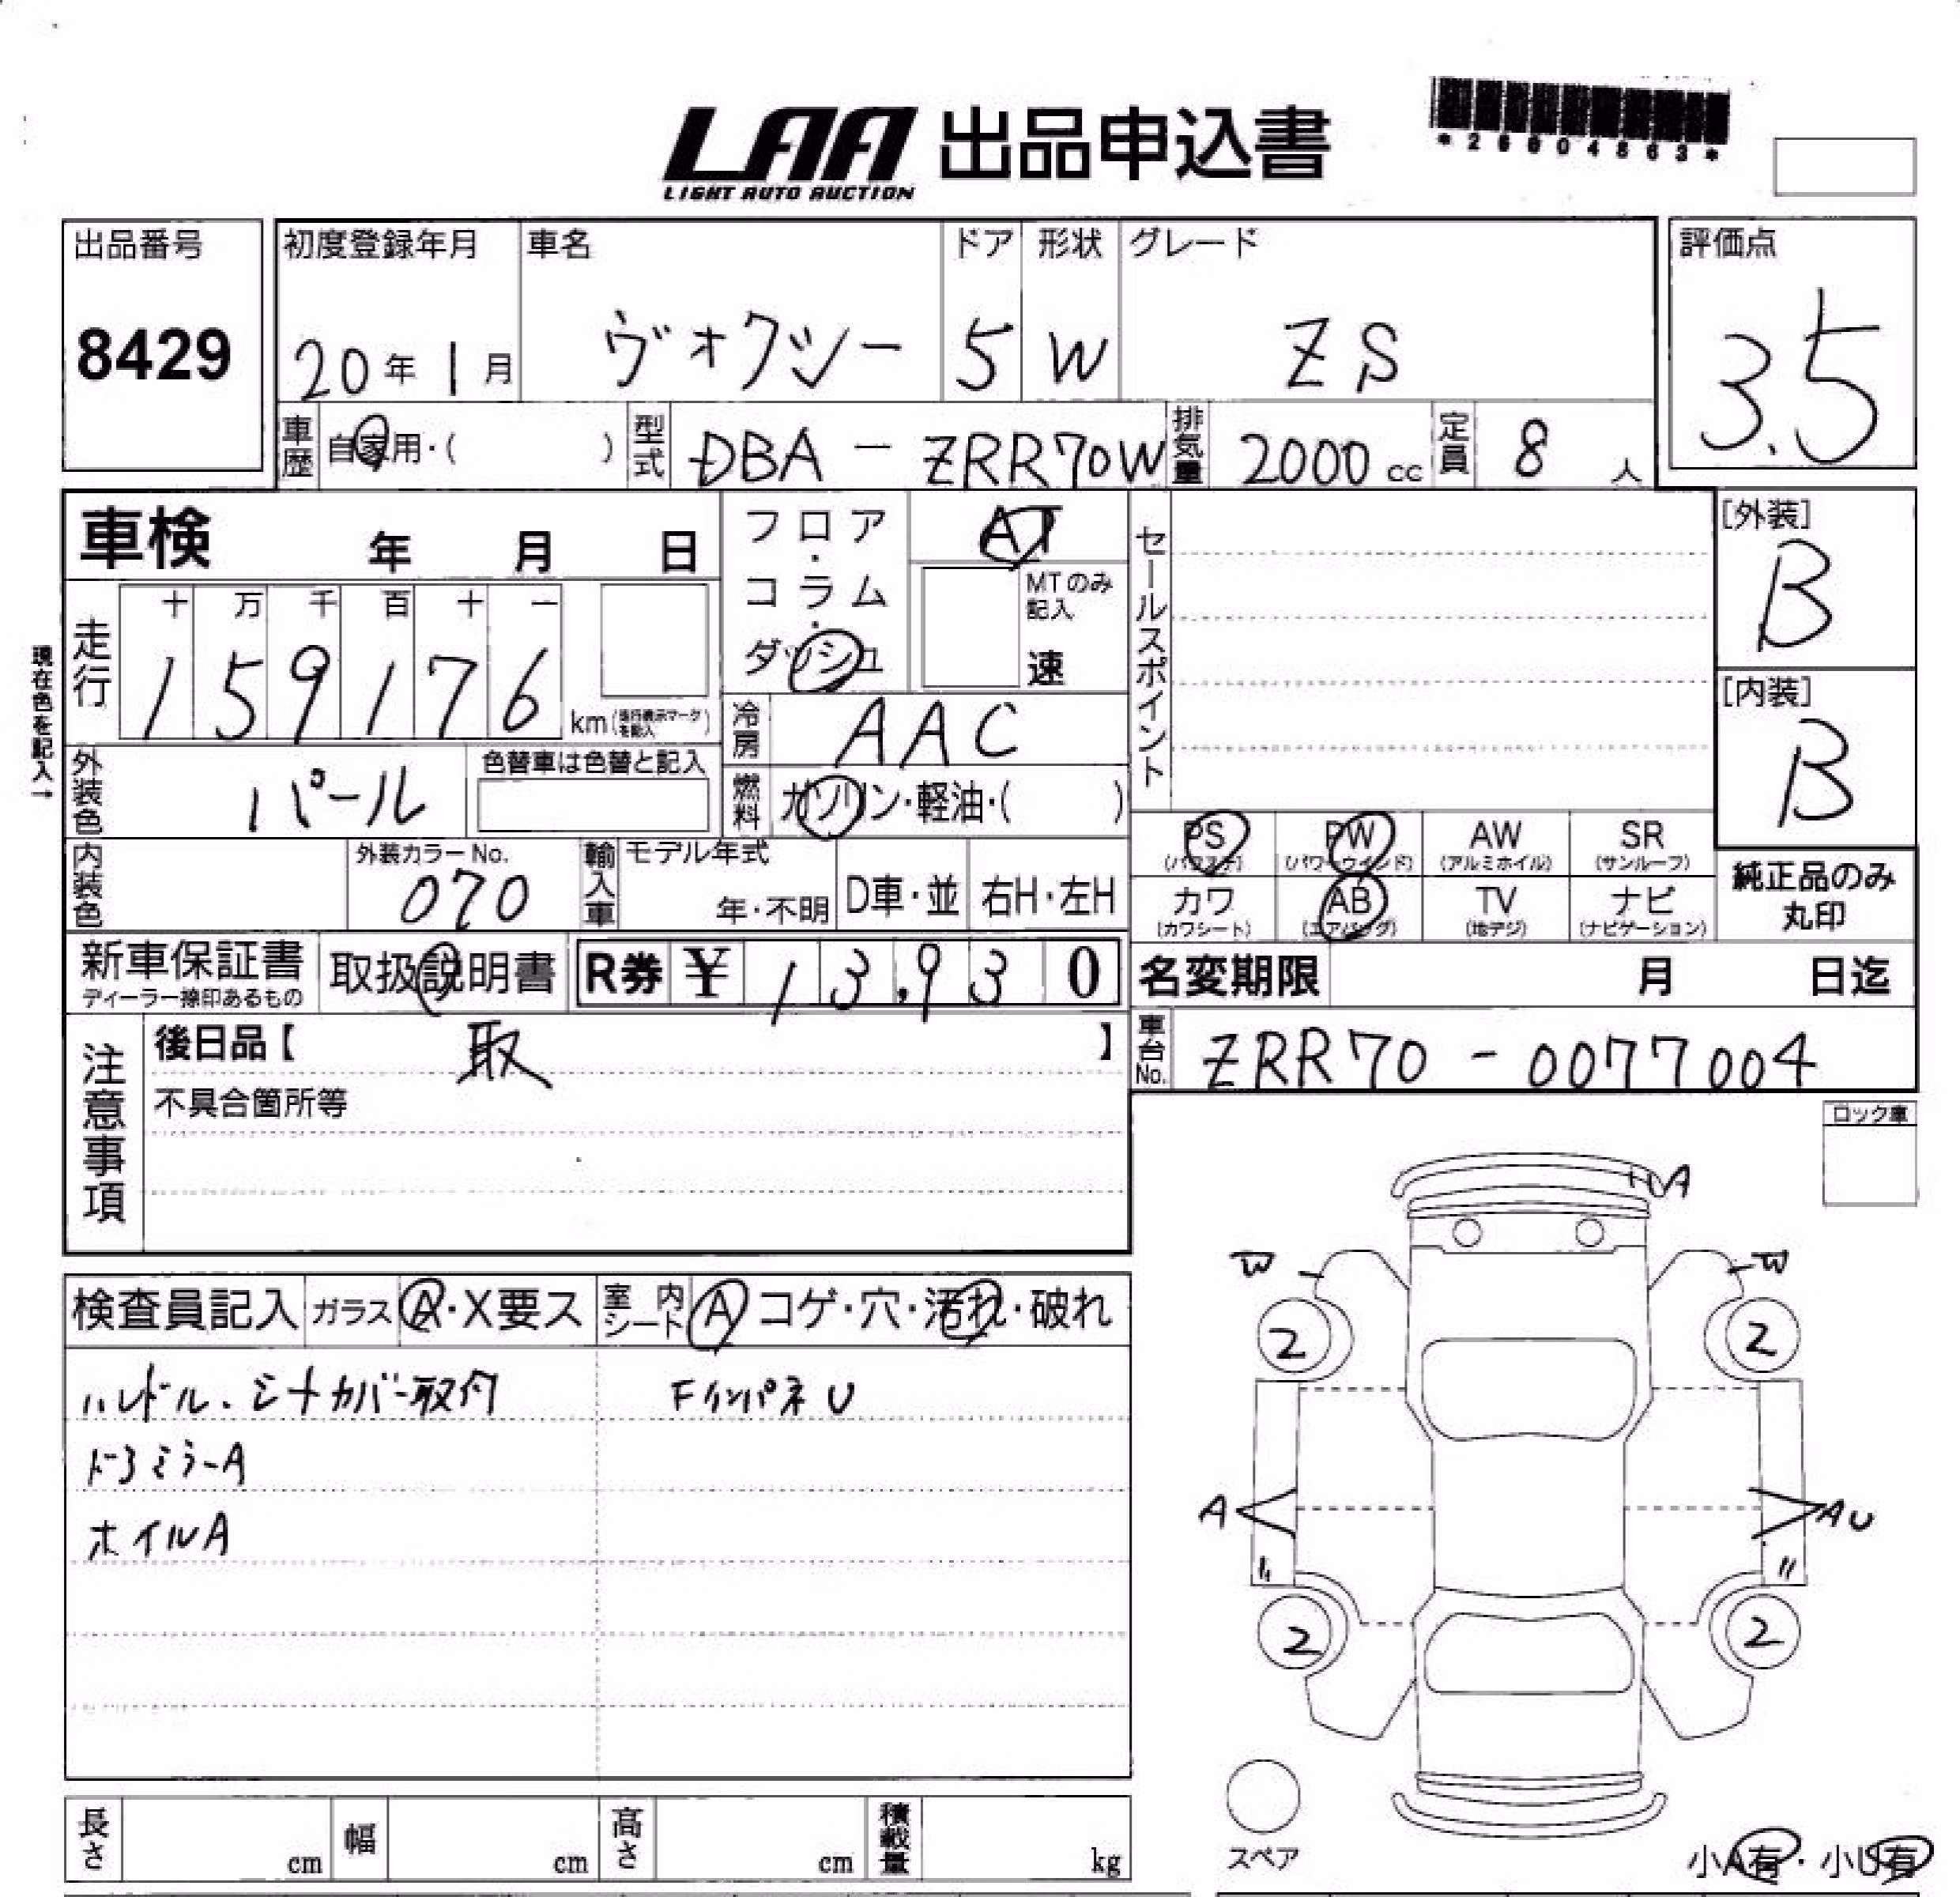 LAA 出品申込書
LIGHT AUTO AUCTION
出品番号
8429
初度登録年月
20年 1月
車名
ヴォクシー
ドア
5
形状
W
グレード
ZS
評価点
3.5
車歴
自家用・( )
型式
DBA - ZRR70W
排気量
2000 cc
定員
8 人
車検 年 月 日
フロア・コラム・ダッシュ
AT
MTのみ記入
速
セールスポイント
[外装]
B
[内装]
B
現在色を記入→
走行
十 万 千 百 十 一
1 5 9 1 7 6 km
冷房
AAC
外装色
パール
色替車は色替と記入
燃料
ガソリン・軽油・( )
PS (パワステ)
PW (パワーウインド)
AW (アルミホイル)
SR (サンルーフ)
カワ (カワシート)
AB (エアバッグ)
TV (地デジ)
ナビ (ナビゲーション)
純正品のみ
丸印
内装色
外装カラーNo.
070
輸入車
モデル年式
年・不明
D車・並
右H・左H
新車保証書
ディーラー捺印あるもの
取扱説明書
R券 ¥ 13,930
名変期限 月 日迄
車台No.
ZRR70 - 0077004
注意事項
後日品【 取 】
不具合箇所等
ロック車
検査員記入
ガラス A・X要ス
室内シート A コゲ・穴・汚れ・破れ
ハンドル、シートカバー取付
FインパネU
ドアミラーA
ホイルA
A
W
W
2
2
A
AU
2
2
スペア
小A有・小U有
長さ cm
幅 cm
高さ cm
積載量 kg